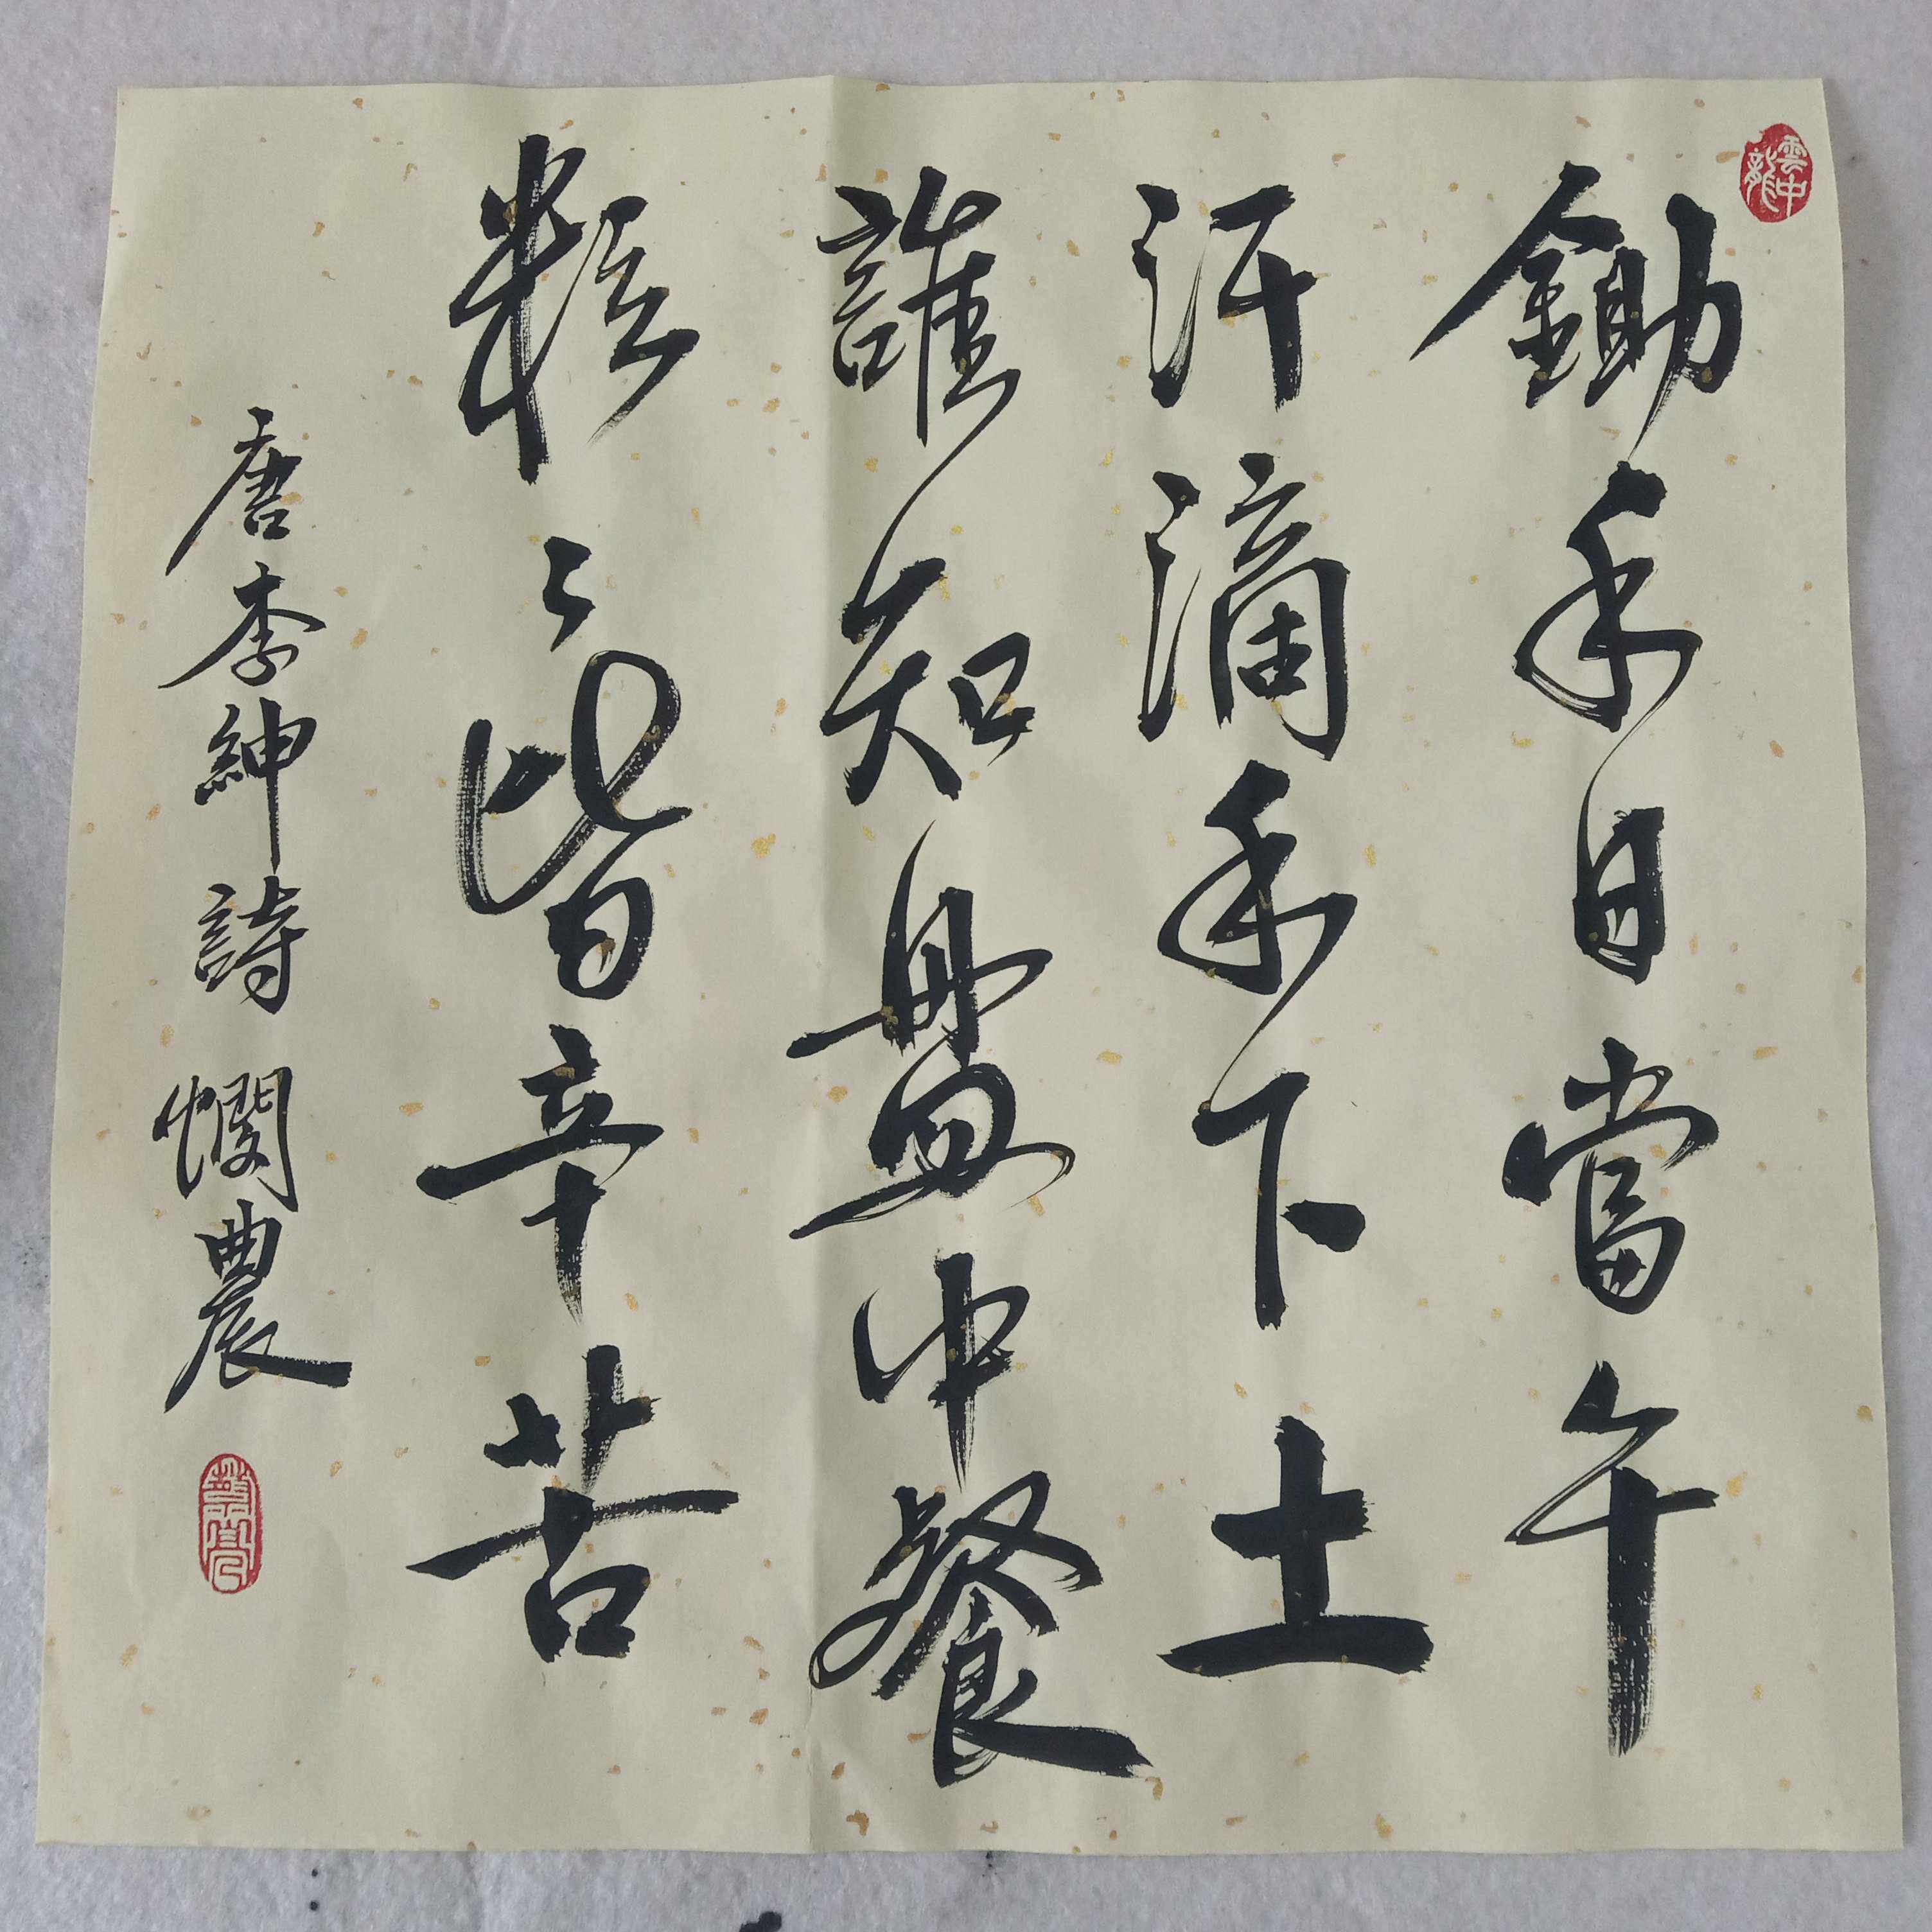 雲中龍
鋤禾日當午
汗滴禾下土
誰知盤中餐
粒〻皆辛苦
唐李紳詩 憫農